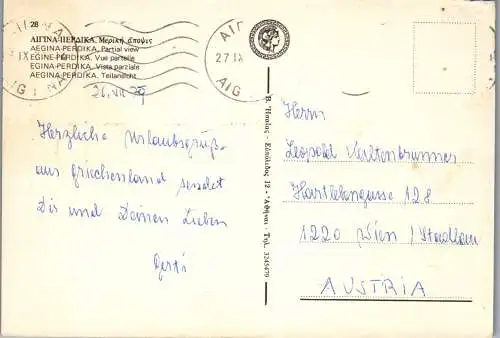 28
ΑΙΓΙΝΑ-ΠΕΡΔΙΚΑ. Μερική ἄποψις
AEGINA-PERDIKA. Partial view
EGINE-PERDIKA. Vue partielle
EGINA-PERDIKA. Vista parziale
AEGINA-PERDIKA. Teilansicht
ΑΙΓΙΝΑ
IX
AIGINA
ΑΙΓ
27 IX
AIG
26.VII
Herzliche Urlaubsgrüße
aus Griechenland sendet
Dir und Deinen Lieben
Gerti
12 - Ἀθῆναι - Τηλ. 3245470
Herrn
Leopold
Hartlebengasse 128
1220 Wien / Stadlau
AUSTRIA